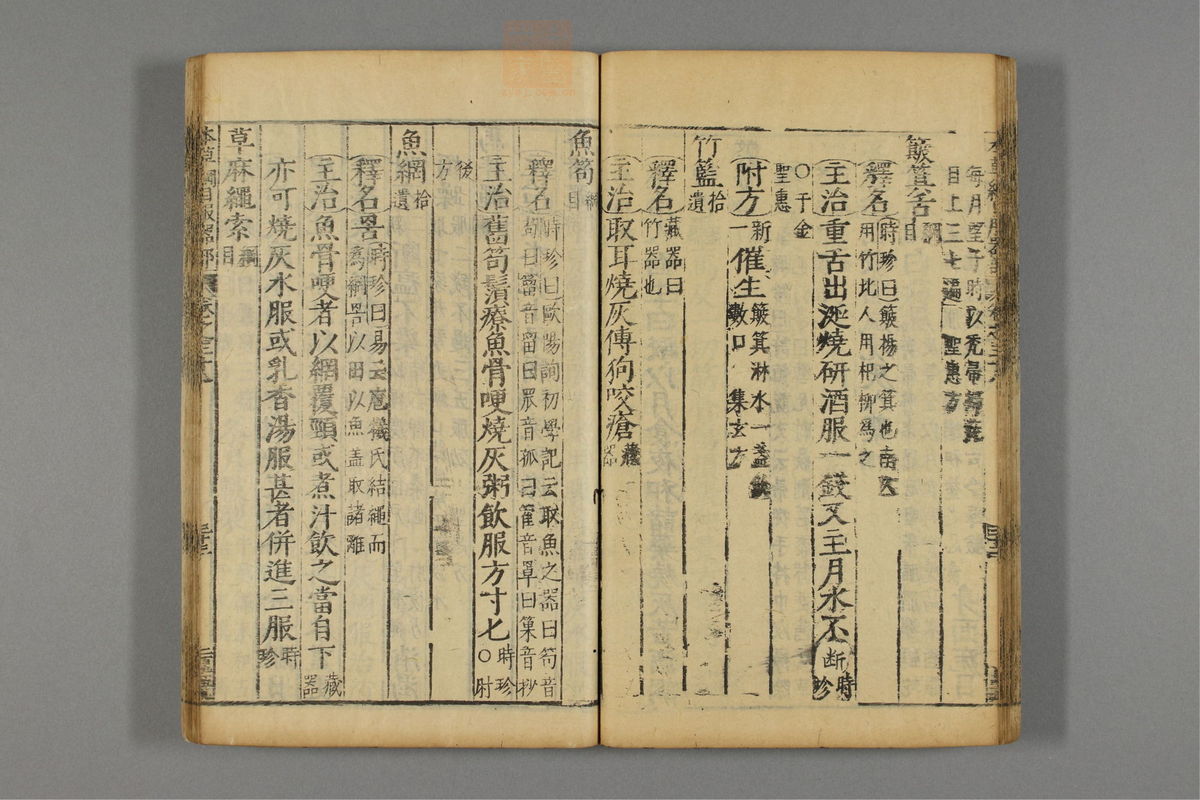 每月望子時以禿帚掃疣
目上三七遍 聖惠方
簸箕舌綱目
釋名時珍曰簸揚之箕也南人
用竹北人用杞柳爲之
主治重舌出涎燒研酒服一錢又主月水不断時珍
○千金
聖惠
附方新一催生簸箕淋水一盞飲
數口 集玄方
竹籃拾遺
釋名藏器曰
竹器也
主治取耳燒灰傅狗咬瘡藏器
魚笱綱目
釋名時珍曰歐陽詢初學記云取魚之器曰笱音
苟曰罶音留曰罛音孤曰篧音罩曰罺音抄
主治舊笱鬚療魚骨哽燒灰粥飲服方寸匕時珍○肘
後方
魚網拾遺
釋名罟時珍曰易云庖犧氏結繩而
爲網罟以田以魚蓋取諸離
主治魚骨哽者以網覆頸或煮汁飲之當自下藏器
亦可燒灰水服或乳香湯服甚者併進三服時珍
草麻繩索綱目
本草綱目服器部